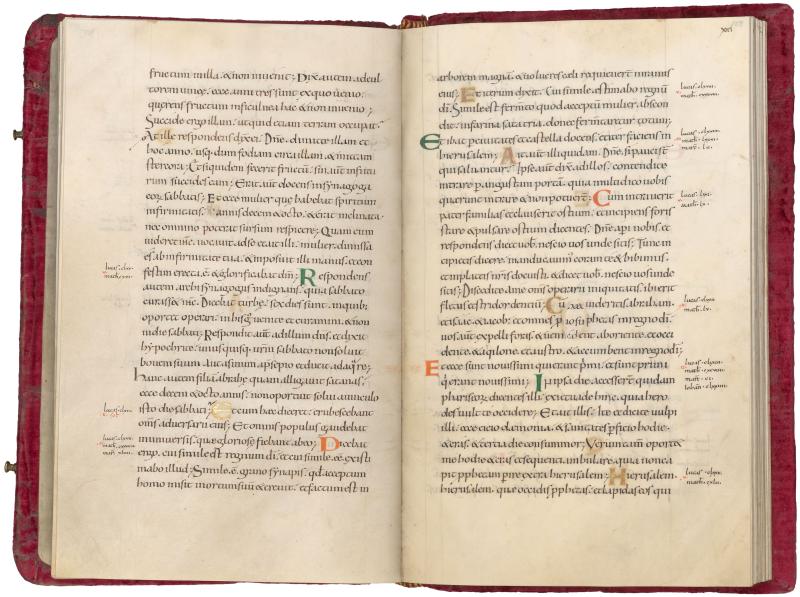 fructum in illa. & non invenit; Dix̄ autem ad cul
torem vineę. ecce anni tres sunt. ex quo venio
querens fructum in ficulnea hac & non invenio;
Succide ergo illam. ut quid etiam terram occupat.
At ille respondens dixit ei. Dn̄e. dimitte illam et
hoc anno. usq. dum fodiam circa illam. & mittam
stercora; Et siquidem fecerit fructū. sin aut̄ in futu
rum succides eam; Erat aut̄ docens in synagoga
eorū sabbatis; Et ecce mulier quę habebat spiritum
infirmitatis. annis decem & octo. & erat inclinata.
nec omnino poterat sursum respicere; Quam cum
videret ih̄c. vocavit ad se et ait illi. mulier. dimissa
es ab infirmitate tua. & imposuit illi manus. et con
festim erecta. ē. & glorificabat dm̄; Respondens
autem archisynagogus indignans. quia sabbato
curasset ih̄c. Dicebat turbę. sex dies sunt. in quib;
oportet operari. in his g̊ venite et curamini. & non
in die sabbati; Respondit aut̄ ad illum dn̄s. et dixit
hypochritę. unus quisq; vr̄m sabbato non solvit
bovem suum. aut asinum a pręsepio. et ducit adaq̄re;
hanc autem filiā abrahę quam alligavit satanas.
ecce decem & octo annis. non oportuit solvi a vinculo
isto die sabbati; Et cum hęc diceret. erubescebant
om̄s adversarii eius; Et omnis populus gaudebat
in universis. quę gloriose fiebant ab eo; Dicebat
ergo. cui simile est regnum dī. et cui simile. ēē existi
mabo illud; Simile. ē. grano synapis. qd̄ acceptum
homo misit in ortum suū & crevit. et factum est in
lucas
lucas
lucas
XXII
arborem magnā. & volucres cęli requieverт̄ in ramis
eius; Et iterum dixit. Cui simile estimabo regnū
dī. Simile est fermto quod acceptū mulier. abscon
dit in farina sata tria. donec fermentaretur totum;
Et ibat per civitates et castella docens. et iter faciens in
hierusalem; Ait aut̄ illi quidam. Dn̄e. si pauci sт̄
qui salvantur; Ipse aut̄ dix̄ ad illos. contendite
intrare p angustam portā. quia multi dico vobis
querent intrare & non poterunт̄; Cum intraverit
pater familias et clauserit ostium. et incipietis foris
stare & pulsare ostium dicentes. Dn̄e aperi nobis. et
respondens dicet vob. nescio vos unde sitis. Tunc in
cipietis dicere. manducavim̄ coram te & bibimus.
et in plateis nr̄is docuisti. & dicet vob. nescio vos unde
sitis; Discedite a me om̄s operarii iniquitatis. ibi erit
fletus et stridor dentiū; Cū videritis abraham.
et isaac. & iacob. et omnes pphetas in regno dī.
vos aut̄ expelli foras. & venient ab oriente. et occi
dente. & aquilone. et austro. & accumbent in regno dī;
Et ecce sunt novissimi qui erunt p̄mi. et sunt primi
q̄ erunt novissimi; In ipsa die accesserт̄ quidam
phariseorū. dicentes illi. exi et vade hinc. quia hero
des vult te occidere; Et ait illis. Ite & dicite vulpi
illi. ecce eicio demonia. & sanitates pficio hodie.
& cras. & tercia die consummor; Verum tam̄ oportet
me hodie & cras et sequenti ambulare. quia non ca
pit pphetam perire extra hierusalem; Hierusalem.
hierusalem. quę occidis pphetas. et lapidas eos qui
lucas
lucas
lucas
lucas
lucas
lucas